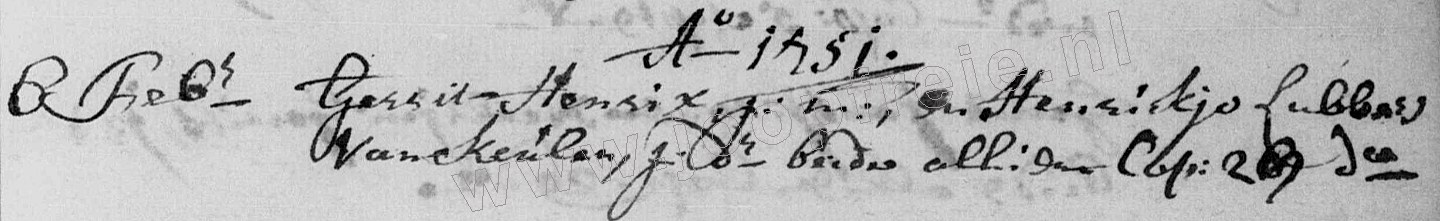 Aº 1751.
6 Febr. Gerrit Henrix, j: m:, en Henrickjo Lubbers
Vanckeulen, j: dr beide alhier Cop: 28 dco